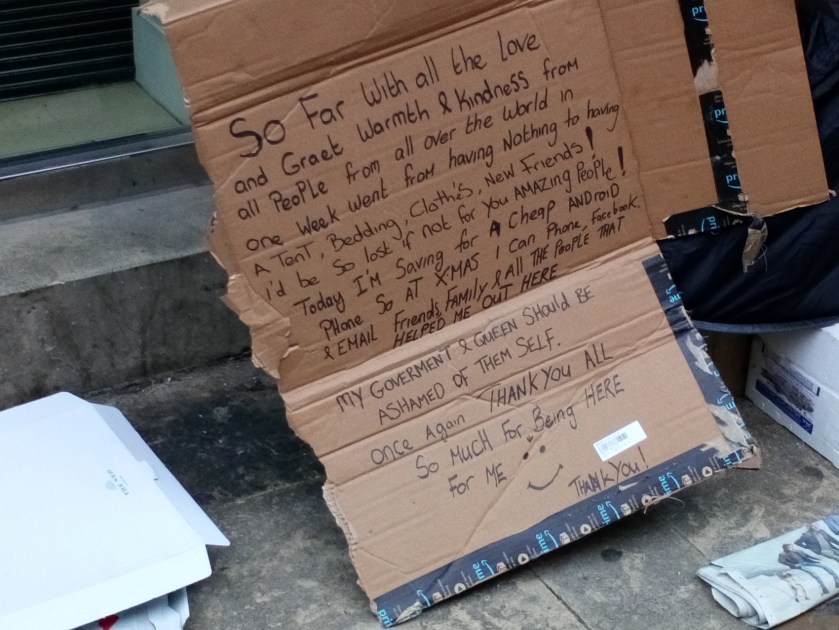 So Far With all the love
and Graet Warmth & Kindness from
all People from all over the World in
one Week Went from having Nothing to having
A Tent, Bedding, Cloths, New Friends!
i'd be So lost if not for you AMAZING PEOPLE!
Today I'M Saving for A Cheap ANDROID
Phone So AT XMAS I Can Phone, Facebook.
& EMAIL Friends, FAMILY & All THE PEOPLE THAT
HELPED ME OUT HERE
MY GOVERMENT & QUEEN SHOULD BE
ASHAMED OF THEM SELF.
once Again THANK YOU ALL
So MUCH FOR Being HERE
FOR ME
THANK YOU!
prime
prime